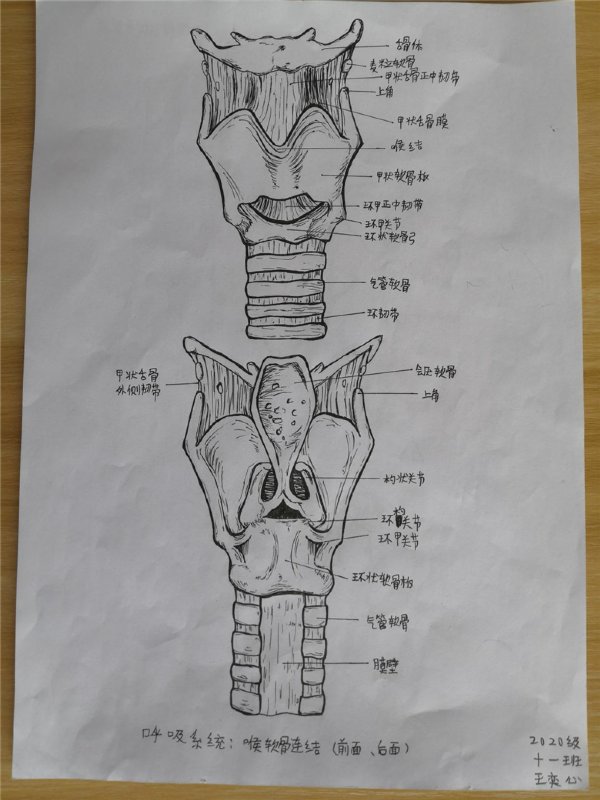 舌骨体
麦粒软骨
甲状舌骨正中韧带
上角
甲状舌骨膜
喉结
甲状软骨板
环甲正中韧带
环甲关节
环状软骨弓
气管软骨
环韧带
甲状舌骨
外侧韧带
会厌软骨
上角
杓状关节
环杓关节
环甲关节
环状软骨板
气管软骨
膜壁
呼吸系统：喉软骨连结（前面、后面）
2020级
十一班
王奕心